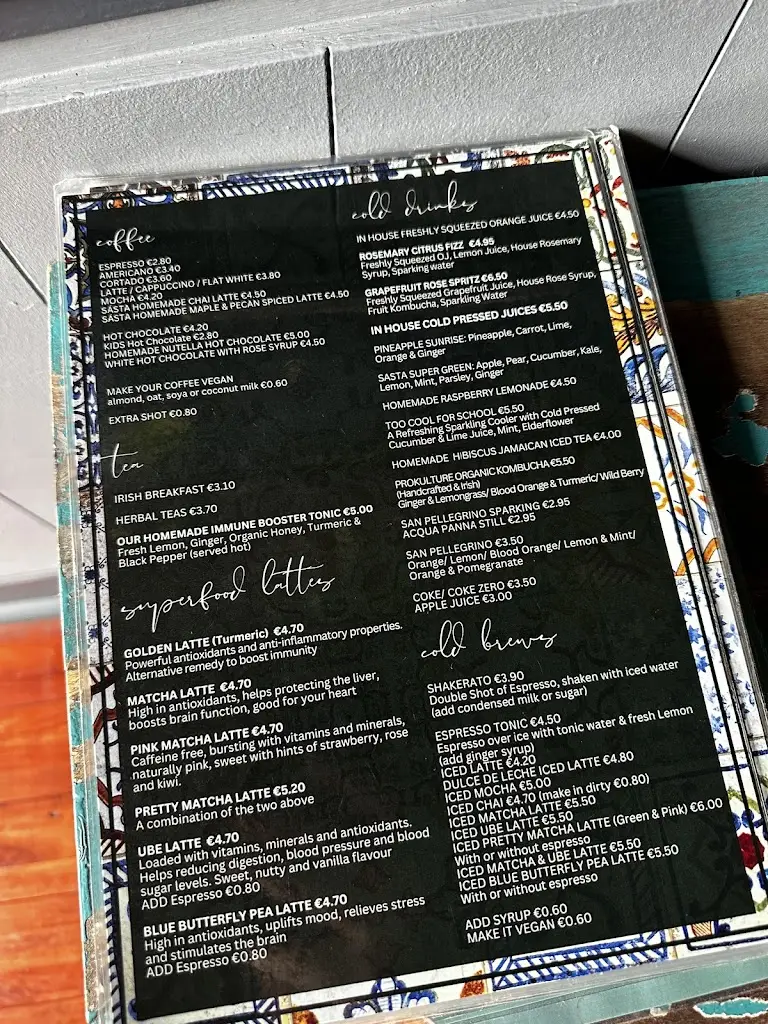 coffee
ESPRESSO €2.80
AMERICANO €3.40
CORTADO €3.60
LATTE / CAPPUCCINO / FLAT WHITE €3.80
MOCHA €4.20
SÁSTA HOMEMADE CHAI LATTE €4.50
SÁSTA HOMEMADE MAPLE & PECAN SPICED LATTE €4.50
HOT CHOCOLATE €4.20
KIDS Hot Chocolate €2.80
HOMEMADE NUTELLA HOT CHOCOLATE €5.00
WHITE HOT CHOCOLATE WITH ROSE SYRUP €4.50
MAKE YOUR COFFEE VEGAN
almond, oat, soya or coconut milk €0.60
EXTRA SHOT €0.80
tea
IRISH BREAKFAST €3.10
HERBAL TEAS €3.70
OUR HOMEMADE IMMUNE BOOSTER TONIC €5.00
Fresh Lemon, Ginger, Organic Honey, Turmeric &
Black Pepper (served hot)
superfood lattes
GOLDEN LATTE (Turmeric) €4.70
Powerful antioxidants and anti-inflammatory properties.
Alternative remedy to boost immunity
MATCHA LATTE €4.70
High in antioxidants, helps protecting the liver,
boosts brain function, good for your heart
PINK MATCHA LATTE €4.70
Caffeine free, bursting with vitamins and minerals,
naturally pink, sweet with hints of strawberry, rose
and kiwi.
PRETTY MATCHA LATTE €5.20
A combination of the two above
UBE LATTE €4.70
Loaded with vitamins, minerals and antioxidants.
Helps reducing digestion, blood pressure and blood
sugar levels. Sweet, nutty and vanilla flavour
ADD Espresso €0.80
BLUE BUTTERFLY PEA LATTE €4.70
High in antioxidants, uplifts mood, relieves stress
and stimulates the brain
ADD Espresso €0.80
cold drinks
IN HOUSE FRESHLY SQUEEZED ORANGE JUICE €4.50
ROSEMARY CITRUS FIZZ €4.95
Freshly Squeezed OJ, Lemon Juice, House Rosemary
Syrup, Sparking water
GRAPEFRUIT ROSE SPRITZ €6.50
Freshly Squeezed Grapefruit Juice, House Rose Syrup,
Fruit Kombucha, Sparkling Water
IN HOUSE COLD PRESSED JUICES €5.50
PINEAPPLE SUNRISE: Pineapple, Carrot, Lime,
Orange & Ginger
SASTA SUPER GREEN: Apple, Pear, Cucumber, Kale,
Lemon, Mint, Parsley, Ginger
HOMEMADE RASPBERRY LEMONADE €4.50
TOO COOL FOR SCHOOL €5.50
A Refreshing Sparkling Cooler with Cold Pressed
Cucumber & Lime Juice, Mint, Elderflower
HOMEMADE HIBISCUS JAMAICAN ICED TEA €4.00
PROKULTURE ORGANIC KOMBUCHA €5.50
(Handcrafted & Irish)
Ginger & Lemongrass/ Blood Orange & Turmeric/ Wild Berry
SAN PELLEGRINO SPARKING €2.95
ACQUA PANNA STILL €2.95
SAN PELLEGRINO €3.50
Orange/ Lemon/ Blood Orange/ Lemon & Mint/
Orange & Pomegranate
COKE/ COKE ZERO €3.50
APPLE JUICE €3.00
cold brews
SHAKERATO €3.90
Double Shot of Espresso, shaken with iced water
(add condensed milk or sugar)
ESPRESSO TONIC €4.50
Espresso over ice with tonic water & fresh Lemon
(add ginger syrup)
ICED LATTE €4.20
DULCE DE LECHE ICED LATTE €4.80
ICED MOCHA €5.00
ICED CHAI €4.70 (make in dirty €0.80)
ICED MATCHA LATTE €5.50
ICED UBE LATTE €5.50
ICED PRETTY MATCHA LATTE (Green & Pink) €6.00
With or without espresso
ICED MATCHA & UBE LATTE €5.50
ICED BLUE BUTTERFLY PEA LATTE €5.50
With or without espresso
ADD SYRUP €0.60
MAKE IT VEGAN €0.60